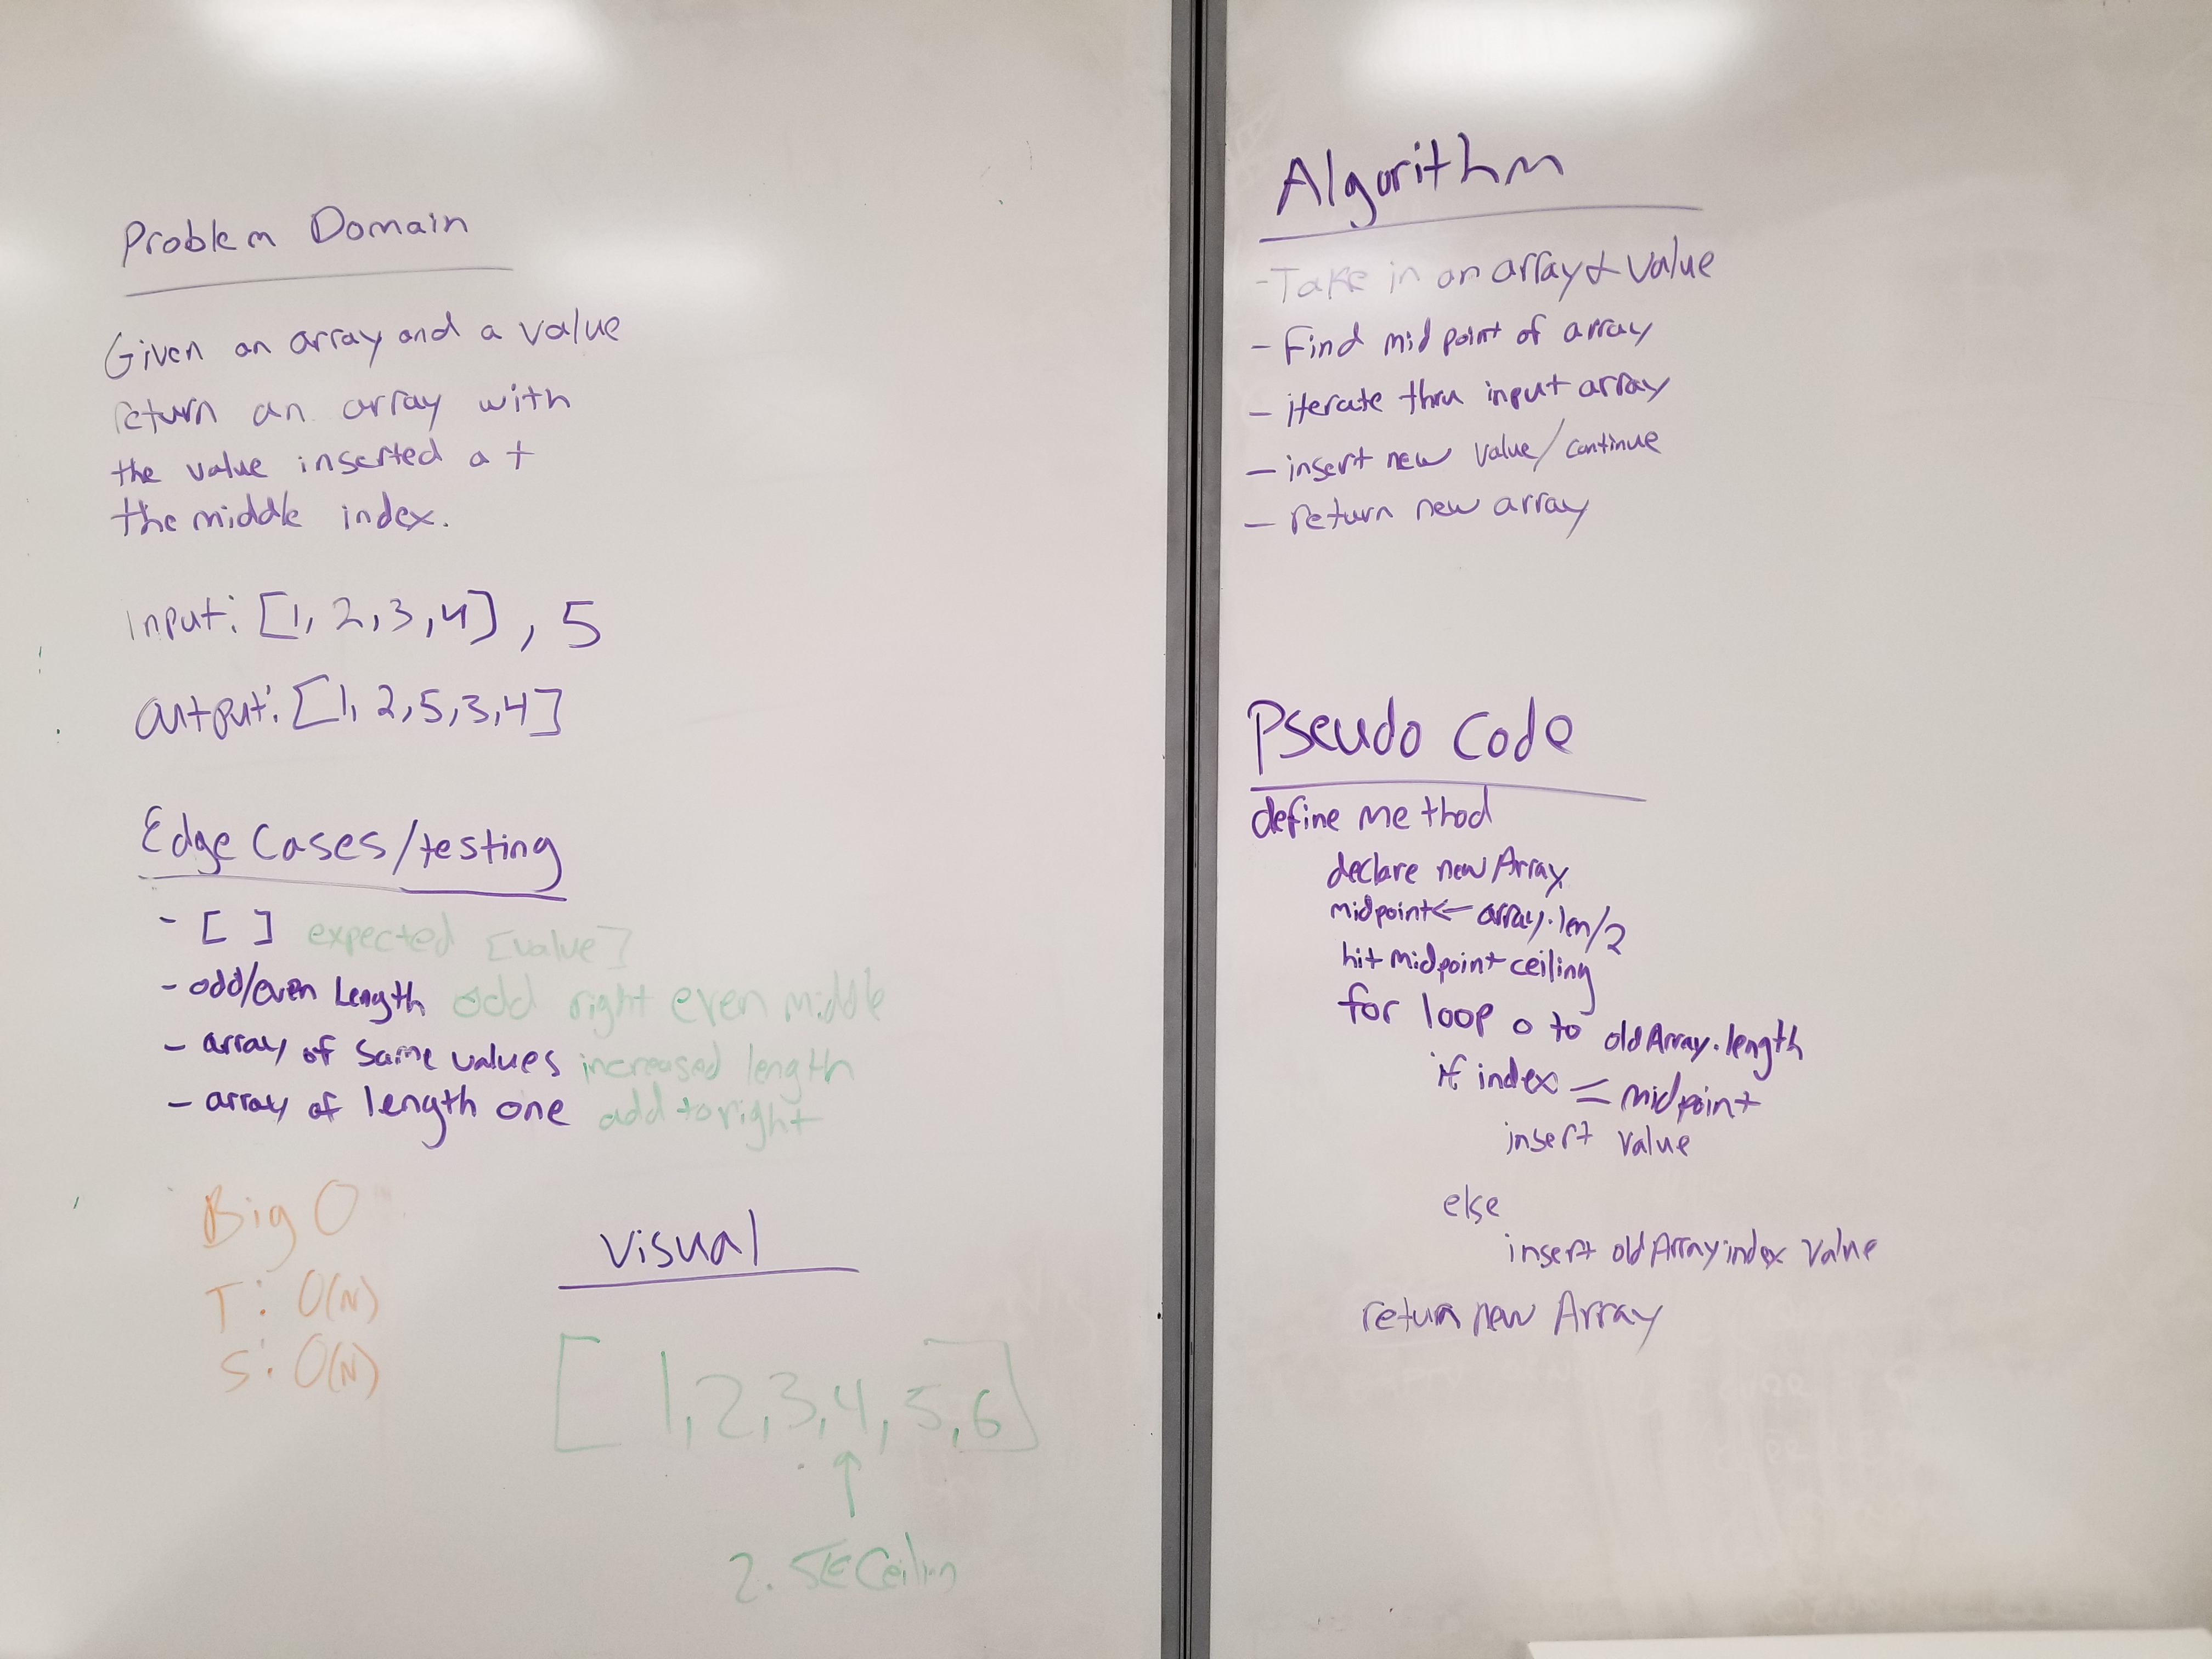 Problem Domain
Given an array and a value
return an array with
the value inserted at
the middle index.
input: [1, 2, 3, 4], 5
output: [1, 2, 5, 3, 4]
Edge Cases/testing
- [ ] expected [value]
- odd/even Length odd right even middle
- array of same values increased length
- array of length one add to right
Big O
T: O(N)
S: O(N)
Visual
[ 1, 2, 3, 4, 5, 6 ]
↑
2.5 Ceilin
Algorithm
- Take in an array & value
- Find midpoint of array
- iterate thru input array
- insert new value/continue
- return new array
Pseudo Code
define method
declare newArray
midpoint ← array.len/2
hit midpoint ceiling
for loop 0 to oldArray.length
if index = midpoint
insert value
else
insert oldArray index value
return new Array